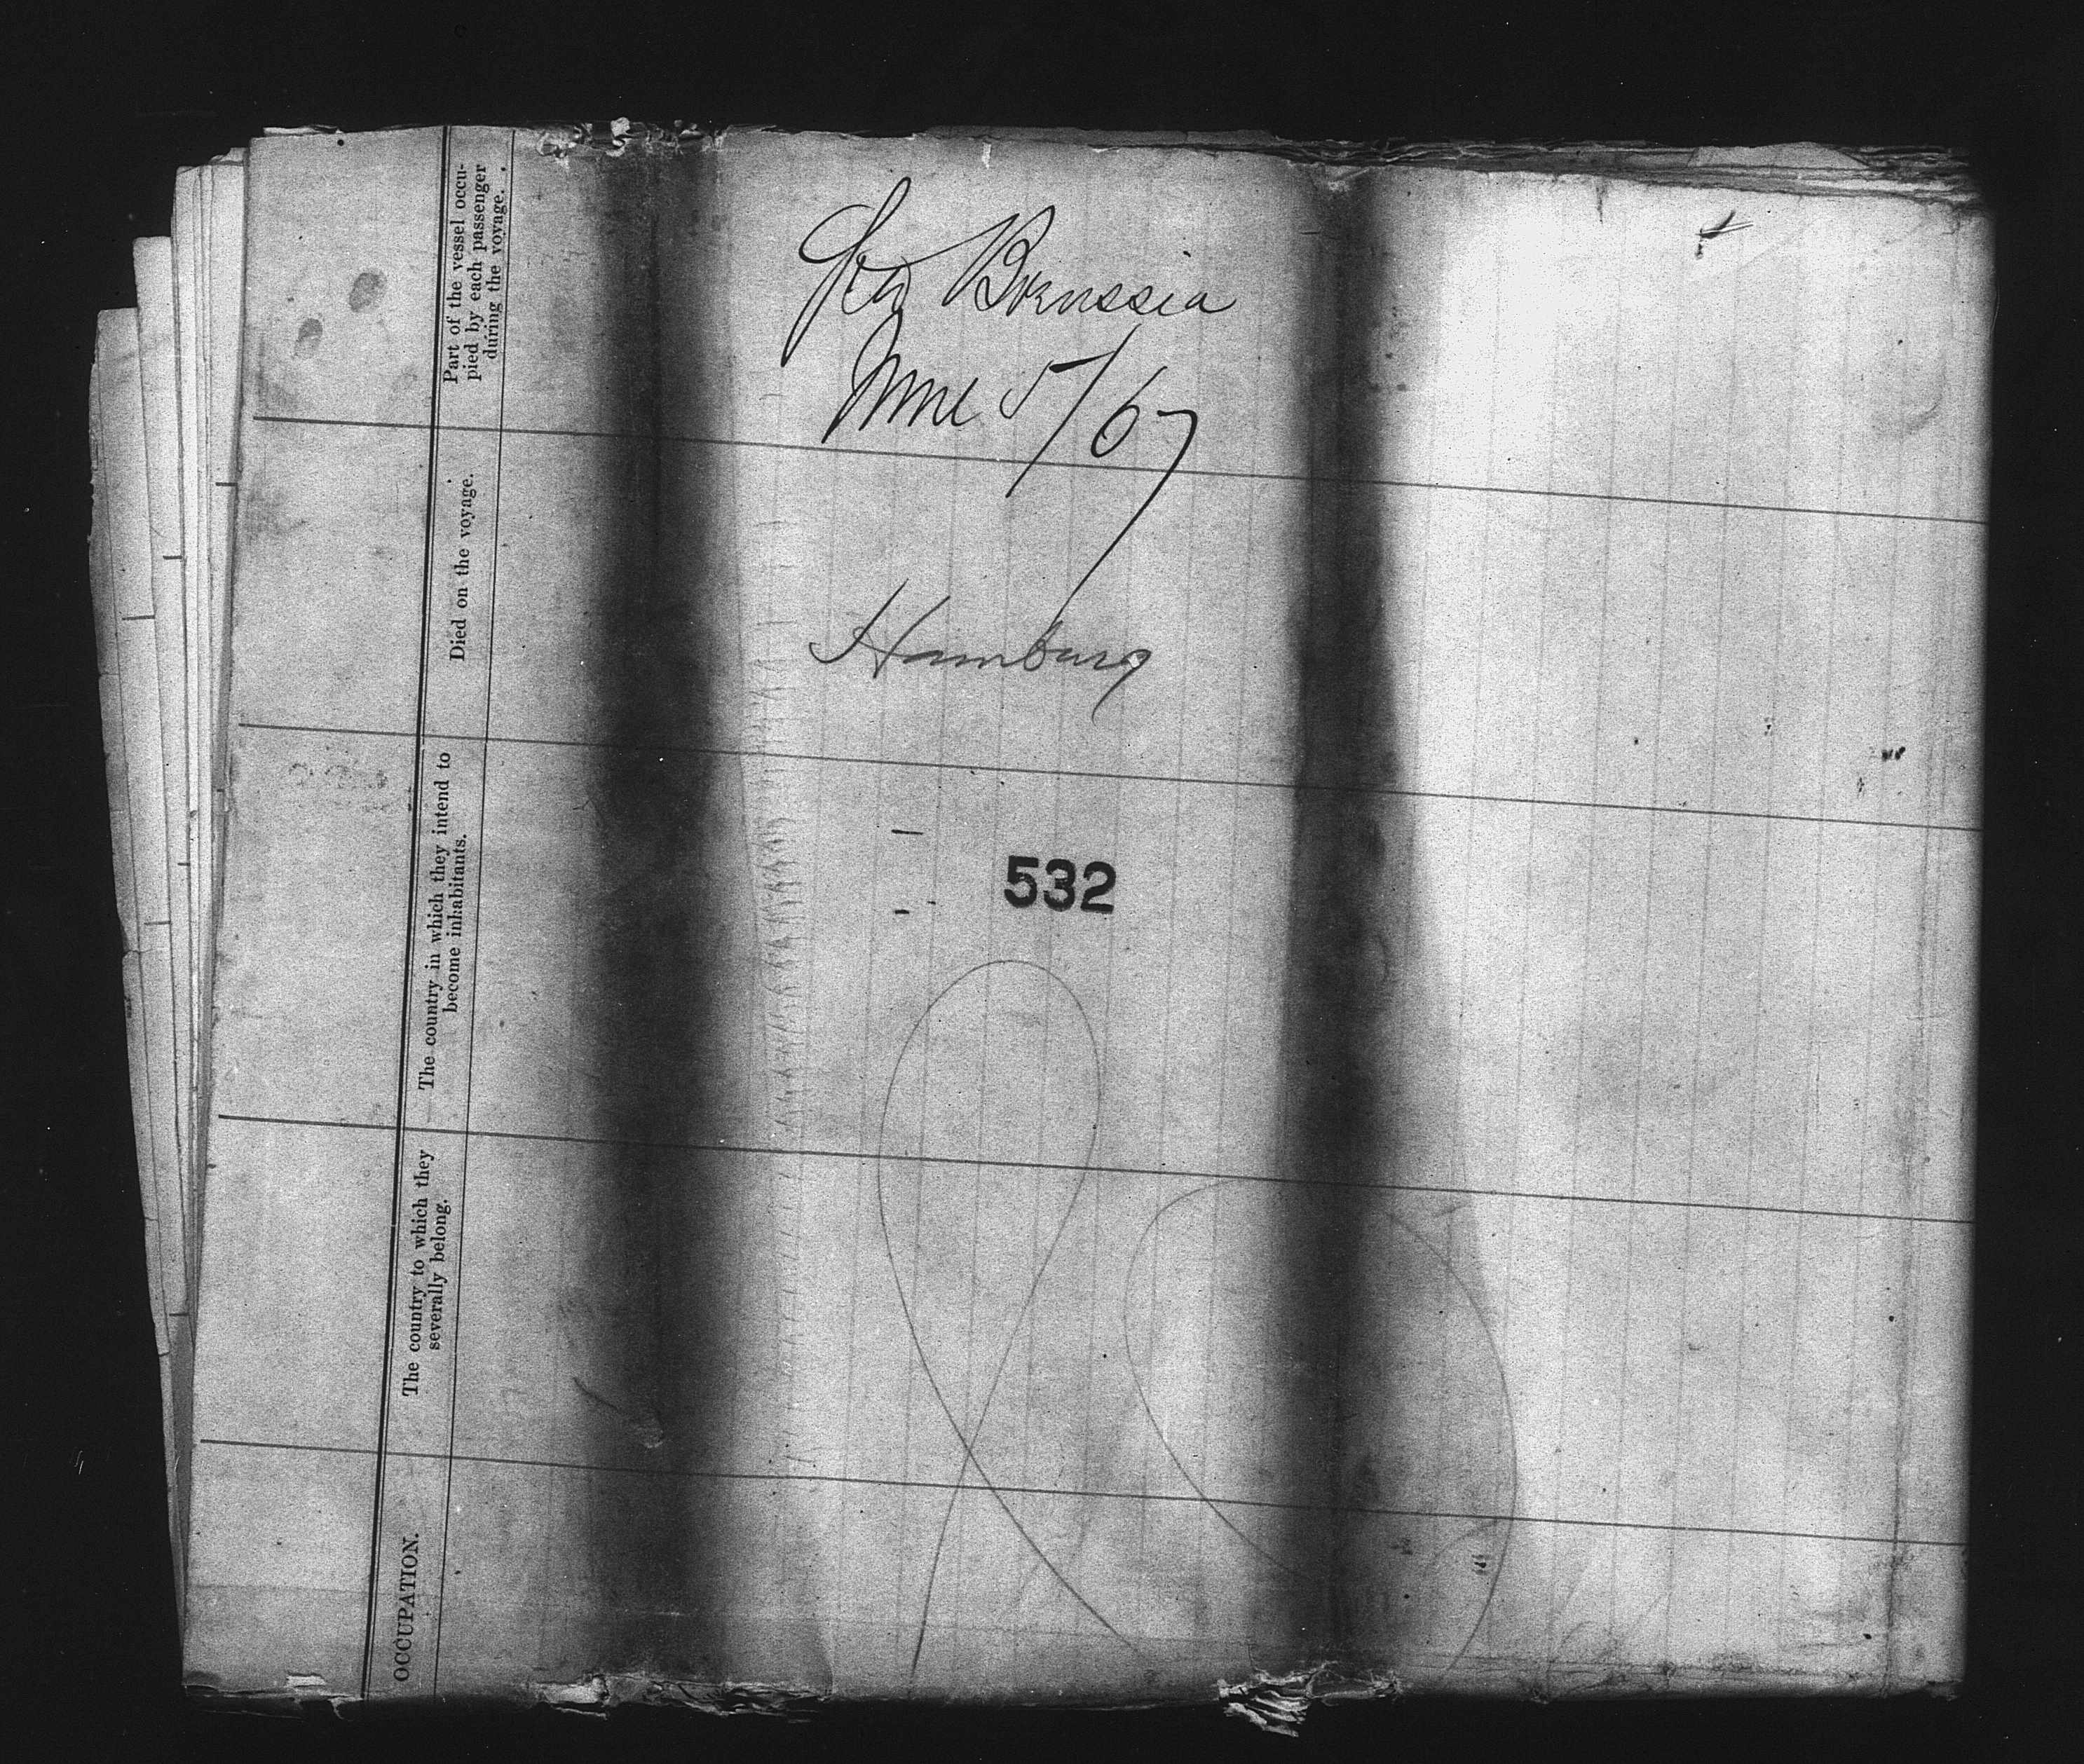 Str Borussia
June 5/67
Hamburg
532
Part of the vessel occu-
pied by each passenger
during the voyage.
Died on the voyage.
The country in which they intend to
become inhabitants.
The country to which they
severally belong.
OCCUPATION.